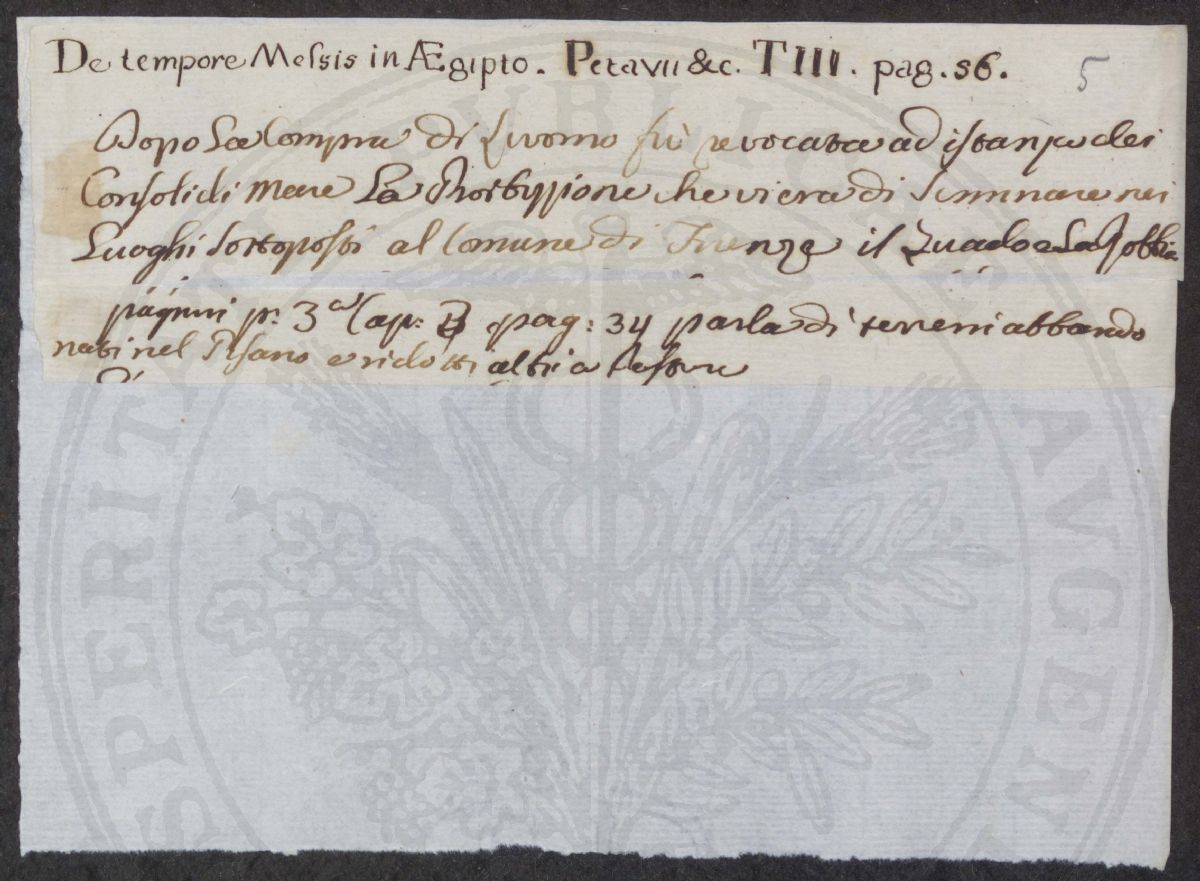 De tempore Messis in Ægipto. Petavii &c. T III. pag. 56.
5
Dopo La Compra di Livorno fù revocata ad istanza dei
Consoli di Mare La Proibizione che vi era di Seminare nei
Luoghi sottoposti al Comune di Firenze il Guado e La Robbia
pagnini p. 3ª Cap: pag: 34 parla di terreni abbando
nati nel Pisano e ridotti altri a Pasture
SPERITA
PVBLICAE
AVGEN